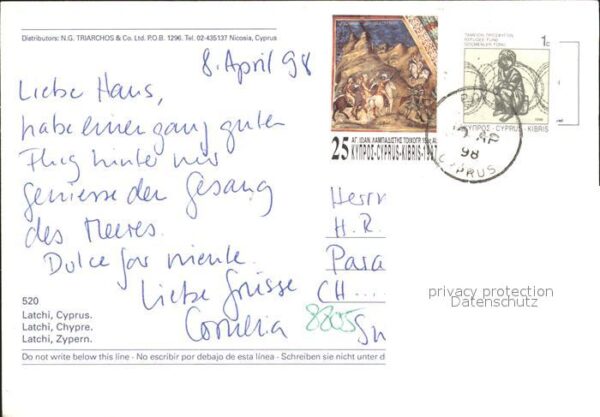 Distributors: N.G. TRIARCHOS & Co. Ltd. P.O.B. 1296. Tel. 02-435127 Nicosia, Cyprus
8. April 98
Liebe Hans,
habe einen ganz guten
Flug hinter mir
geniesse den Gesang
des Meeres.
Dolce far niente.
Liebe Grüsse
Cornelia
520
Latchi, Cyprus.
Latchi, Chypre.
Latchi, Zypern.
Do not write below this line - No escribir por debajo de esta línea - Schreiben sie nicht unter d
25
ΚΥΠΡΟΣ-CYPRUS-KIBRIS-1997
1c
ΚΥΠΡΟΣ · CYPRUS · KIBRIS
AP
98
CYPRUS
Herrn
H. R.
Para
CH ....
8805
privacy protection
Datenschutz